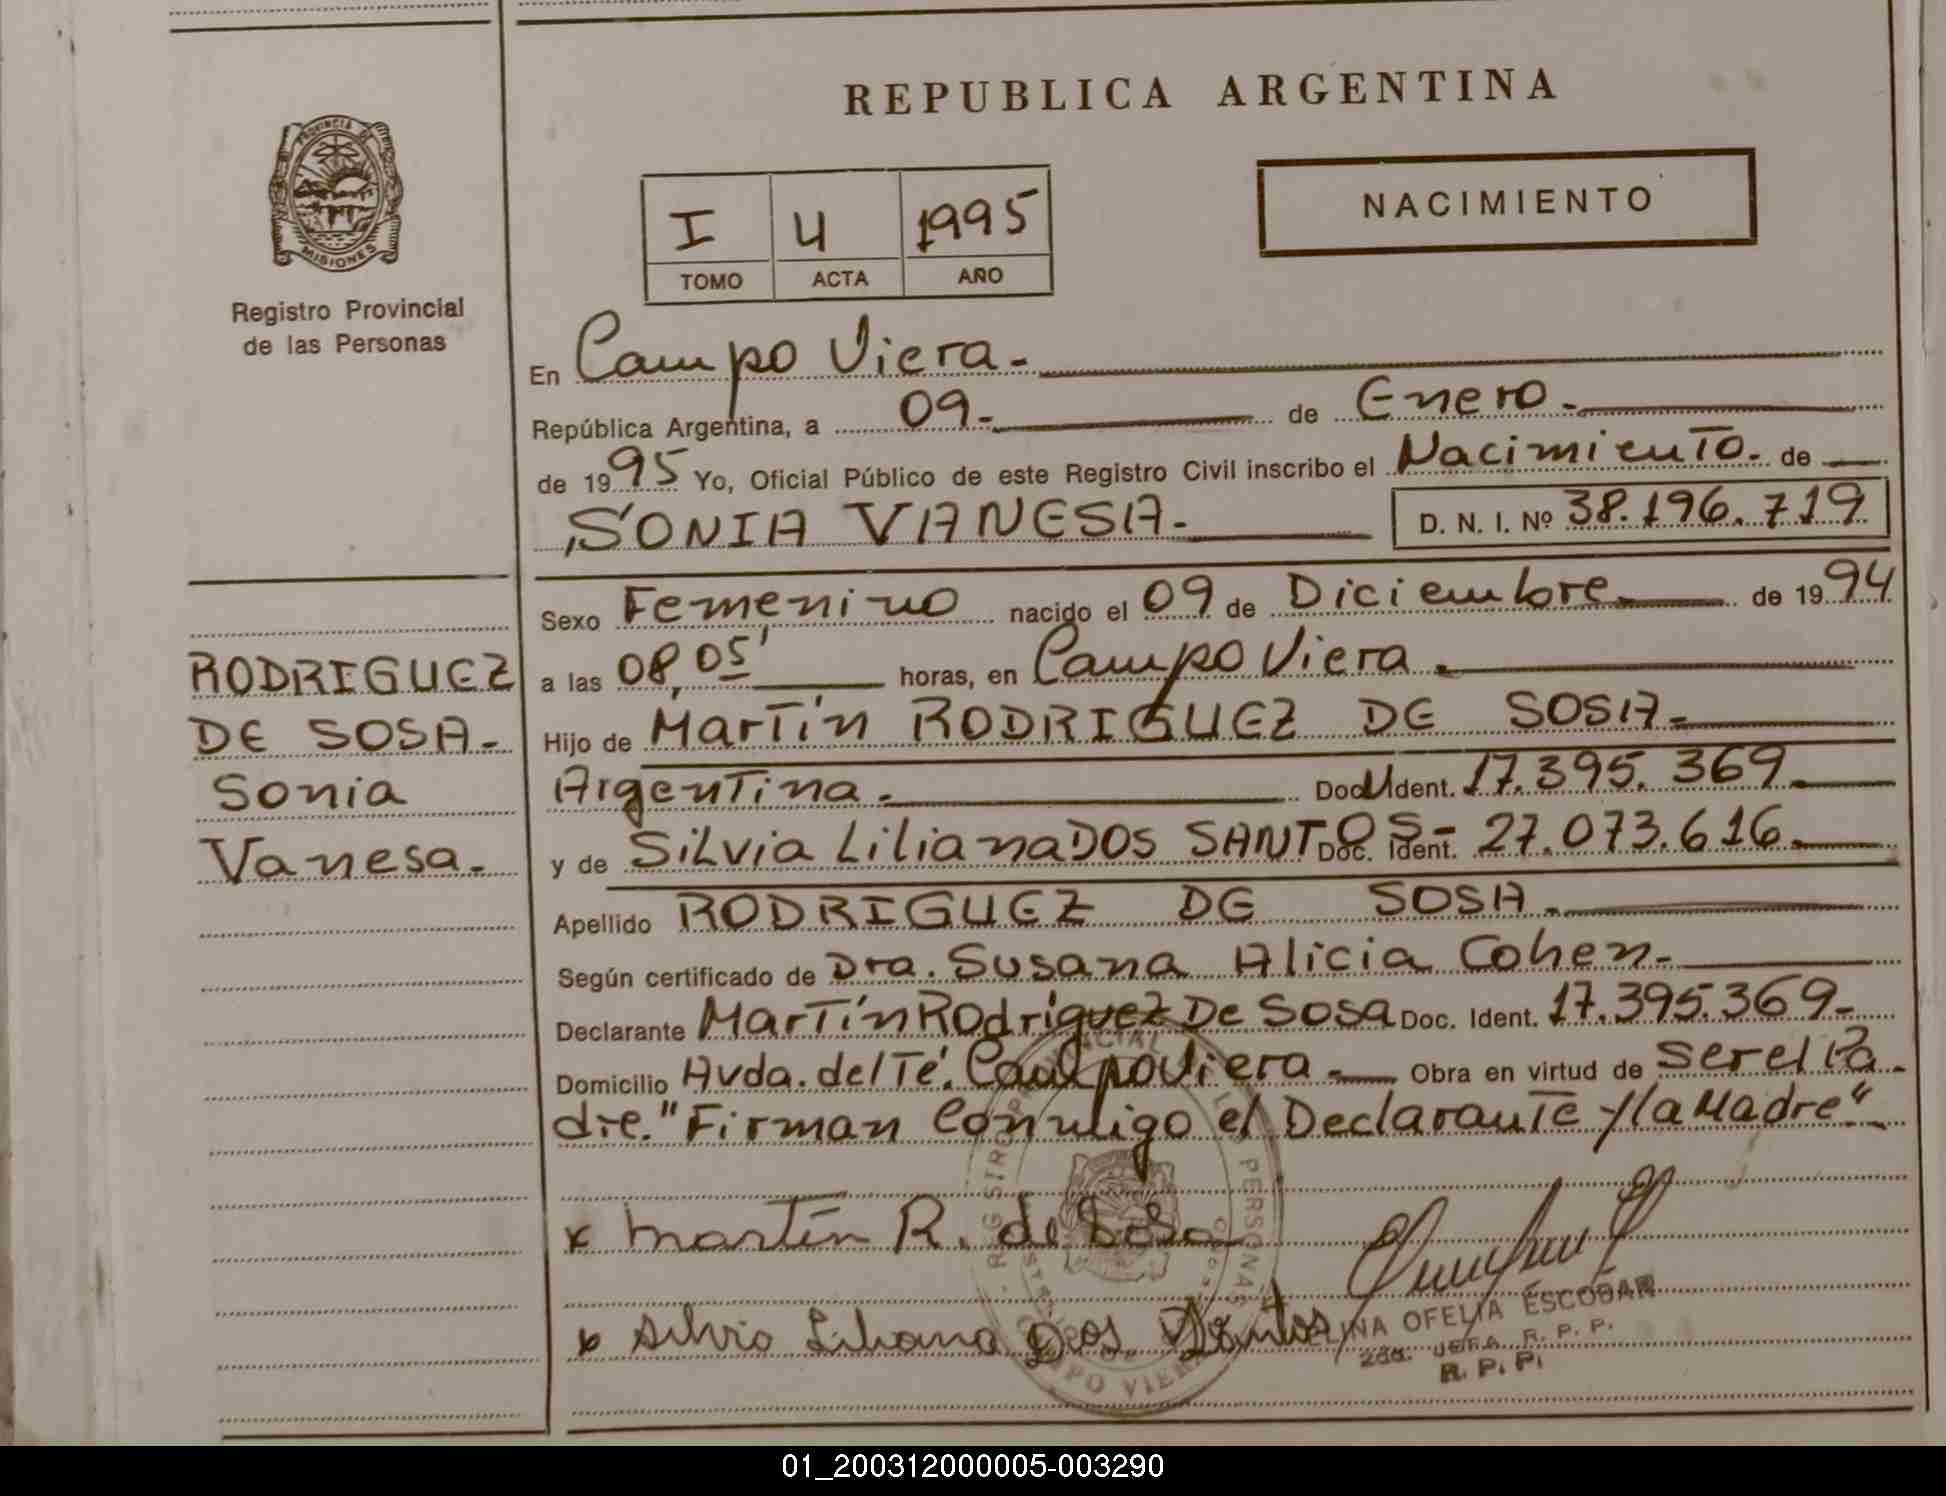 REPUBLICA ARGENTINA
PROVINCIA DE
MISIONES
Registro Provincial
de las Personas
I 4 1995
TOMO ACTA AÑO
NACIMIENTO
En Campo Viera.-
República Argentina, a 09.- de Enero.-
de 1995 Yo, Oficial Público de este Registro Civil inscribo el Nacimiento. de
SONIA VANESA.- D. N. I. Nº 38.196.719
Sexo Femenino nacido el 09 de Diciembre de 1994
a las 08,05' horas, en Campo Viera.
Hijo de Martín RODRIGUEZ DE SOSA.-
Argentina.- Doc. U Ident. 17.395.369.-
y de Silvia Liliana DOS SANTOS.- Doc. Ident. 27.073.616.-
Apellido RODRIGUEZ DE SOSA.-
Según certificado de Dra. Susana Alicia Cohen.-
Declarante Martín Rodriguez De Sosa Doc. Ident. 17.395.369.-
Domicilio Avda. del Té. Campo Viera.- Obra en virtud de ser el Pa
dre. "Firman Conmigo el Declarante y la Madre".-
RODRIGUEZ
DE SOSA.-
Sonia
Vanesa.-
x Martín R. de Sosa
x Silvia Liliana Dos Santos
OFELIA ESCOBAR
2da. JEFA R. P. P.
R. P. P.
01_200312000005-003290